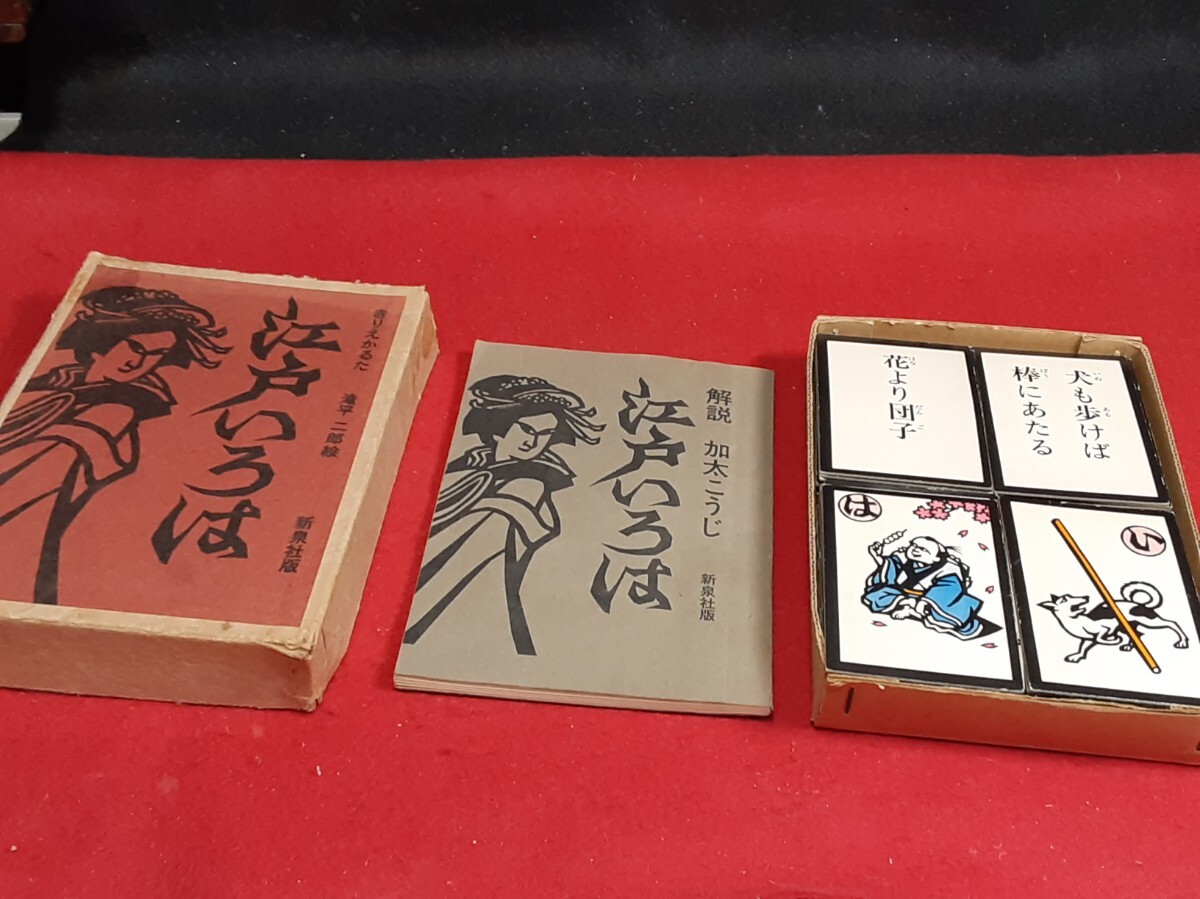 きりえかるた 滝平二郎絵
江戸いろは
新泉社版
解説 加太こうじ
江戸いろは
新泉社版
犬も歩けば
いぬ
ある
棒にあたる
ぼう
花より団子
はな
だんご
は
い